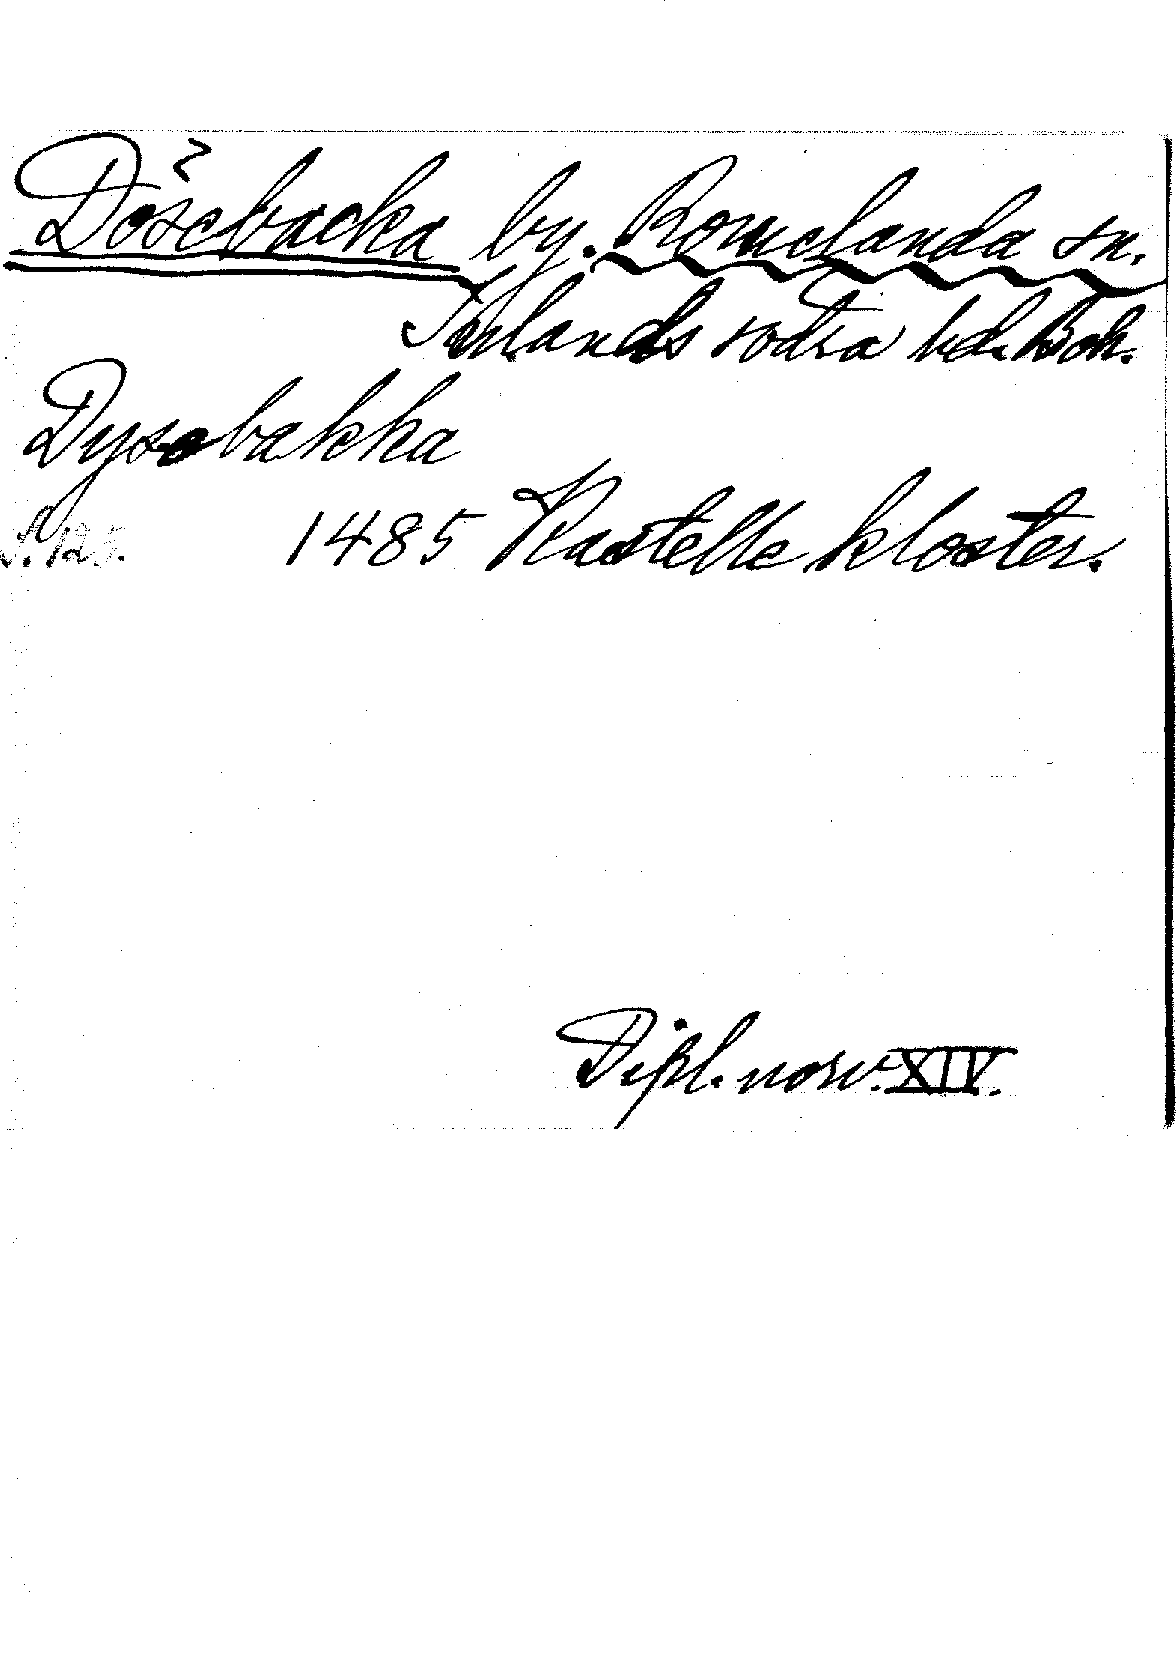 Dösebacka by. Romelanda sn.
Inlands södra hd. Boh.
Dysobakka
S. 125. 1485 Kastelle kloster.
Dipl. norv. XIV.